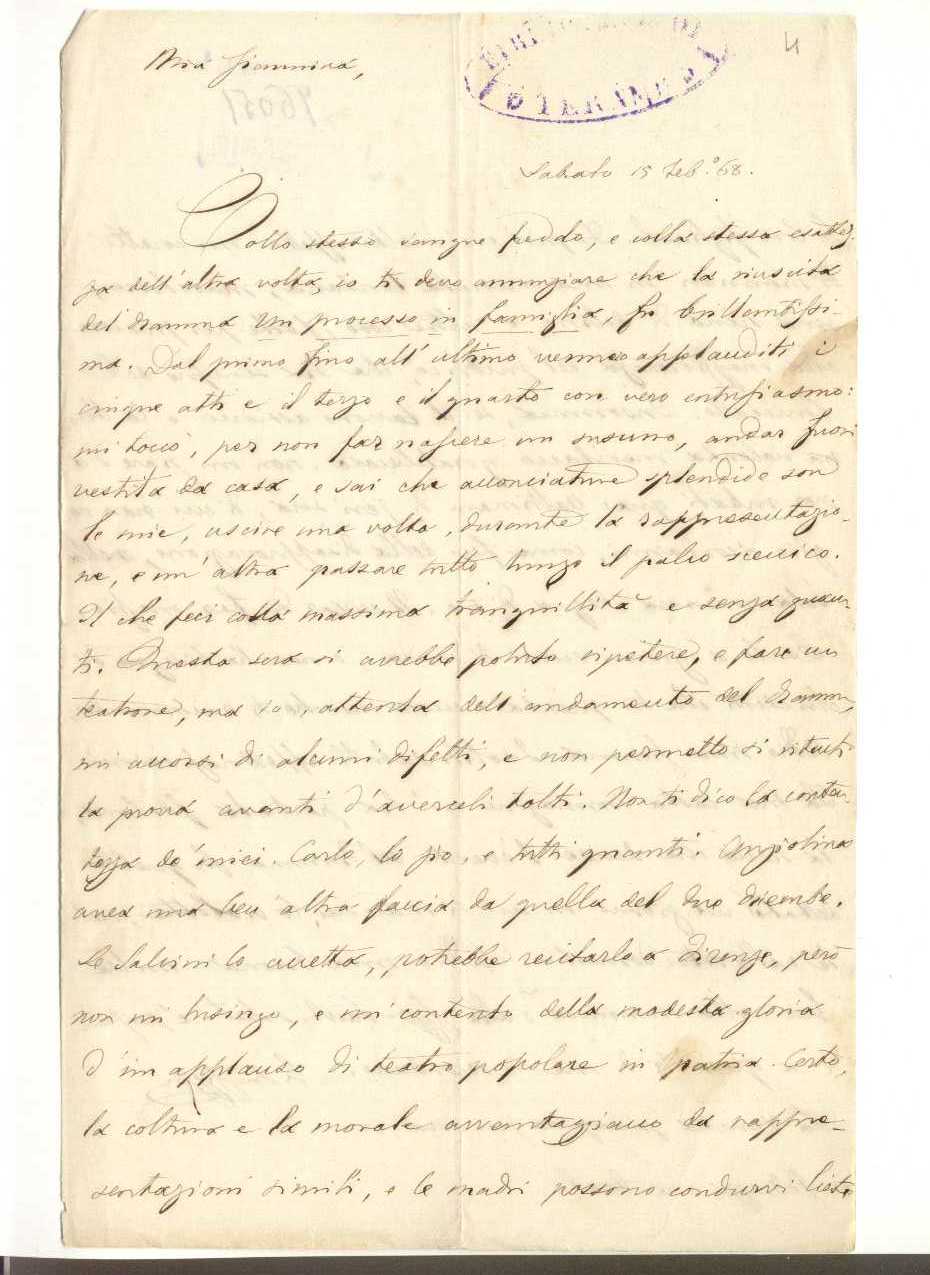 4
Mia Giannina,
TERAMO
76051
Sabato 15 Feb.° 68.
Collo stesso sangue freddo, e colla stessa esattez-
za dell'altra volta, io ti devo annunziare che la riuscita
del dramma Un processo in famiglia, fu brillantissi-
ma. Dal primo fino all'ultimo vennero applauditi i
cinque atti e il terzo e il quarto con vero entusiasmo:
mi toccò, per non far nascere un susurro, andar fuori
vestita da casa, e sai che acconciature splendide son
le mie, uscire una volta, durante la rappresentazio-
ne, e un'altra passare tutto lungo il palco scenico.
Il che feci colla massima tranquillità e senza guan-
ti. Questa sera si avrebbe potuto ripetere, e fare un
teatrone, ma io, attenta dell'andamento del dramma,
mi accorsi di alcuni difetti, e non permetto si ritenti
la prova avanti d'averceli tolti. Non ti dico la conten-
tezza de' miei. Carlo, lo zio, e tutti quanti. Angiolina
avea una ben altra faccia da quella del due dicembre.
Se Salvini lo accetta, potrebbe recitarlo a Firenze, però
non mi lusingo, e mi contento della modesta gloria
d'un applauso di teatro popolare in patria. Certo,
la coltura e la morale avvantaggiano da rappre-
sentazioni simili, e le madri possono condurvi liete